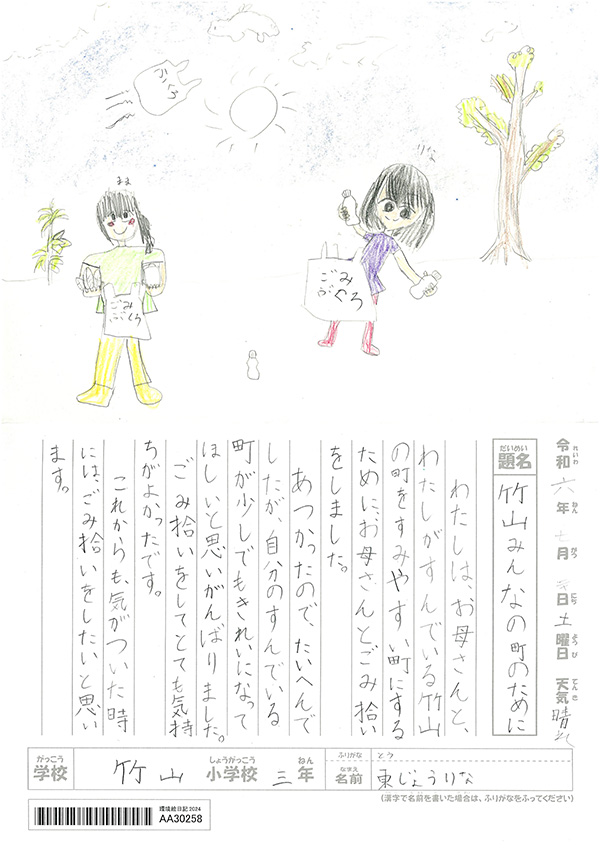 ふくろ
まま
りな
ごみ
ぶくろ
ごみ
ぶくろ
令和 六年 七月 日 土曜日 天気 晴れ
れいわ ねん がつ にち ようび てんき
だいめい
題名
竹山みんなの町のために
わたしは、お母さんと、
わたしがすんでいる竹山
の町をすみやすい町にする
ために、お母さんとごみ拾い
をしました。
あつかったので、たいへんで
したが、自分のすんでいる
町が少しでもきれいになって
ほしいと思いがんばりました。
ごみ拾いをしてとても気持
ちがよかったです。
これからも、気がついた時
には、ごみ拾いをしたいと思い
ます。
がっこう しょうがっこう ねん
学校 竹山 小学校 三年
ふりがな とう
なまえ
名前 東じょうりな
(漢字で名前を書いた場合は、ふりがなをふってください)
環境絵日記2024
AA30258